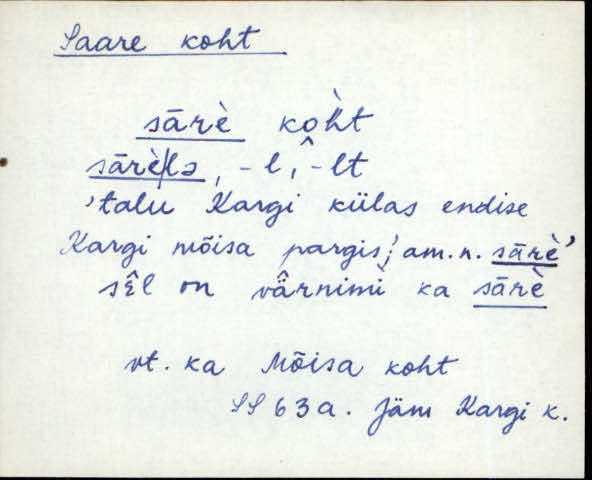 Saare koht
sārè kòht
sārè|lə, -l, -lt
'talu Kargi külas endise
Kargi mõisa pargis; am. n. sārè'
sêl on vârnimì ka sārè
vt. ka Mõisa koht
SS 63a. Jäm Kargi k.